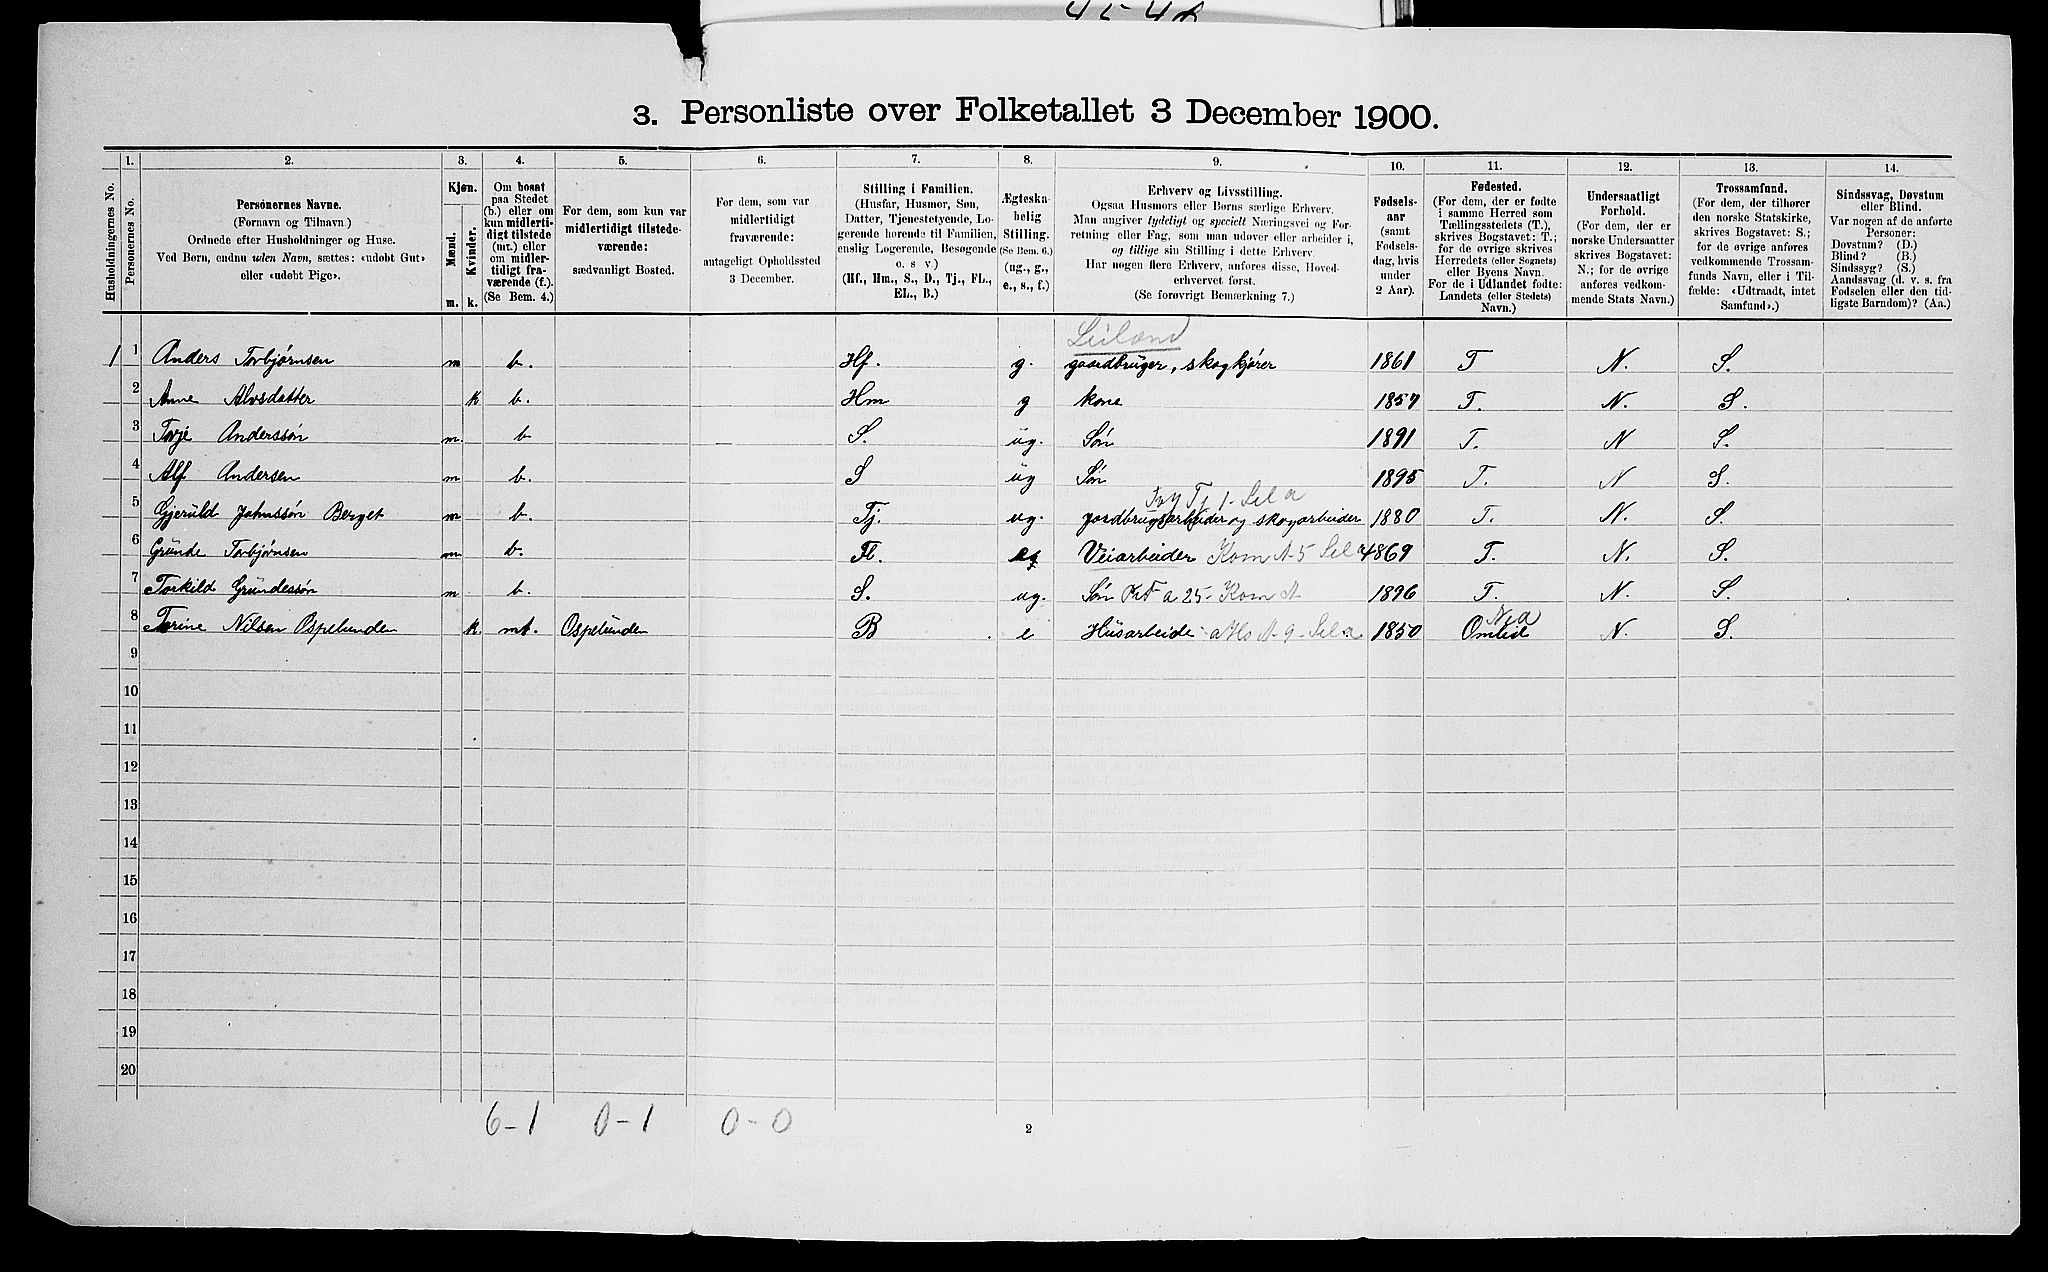 3. Personliste over Folketallet 3 December 1900.
1. 2. 3. 4. 5. 6. 7. 8. 9. 10. 11. 12. 13. 14.
Husholdningernes No.
Personernes No.
Personernes Navne.
(Fornavn og Tilnavn)
Ordnede efter Husholdninger og Huse.
Ved Børn, endnu uden Navn, sættes: «udøbt Gut»
eller «udøbt Pige».
Kjøn.
Mænd.
Kvinder.
m. k.
Om bosat
paa Stedet
(b.) eller om
kun midlerti-
digt tilstede
(mt.) eller
om midler-
tidigt fra-
værende (f.).
(Se Bem. 4.)
For dem, som kun var
midlertidigt tilstede-
værende:
sædvanligt Bosted.
For dem, som var
midlertidigt
fraværende:
antageligt Opholdssted
3 December.
Stilling i Familien.
(Husfar, Husmor, Søn,
Datter, Tjenestetyende, Lo-
gerende hørende til Familien,
enslig Logerende, Besøgende
o. s v.)
(Hf., Hm., S., D., Tj., FL.,
EL., B.)
Ægteska-
belig
Stilling.
(Se Bem. 6.)
(ug., g.,
e., s., f.)
Erhverv og Livsstilling.
Ogsaa Husmors eller Børns særlige Erhverv.
Man angiver tydeligt og specielt Næringsvei og For-
retning eller Fag, som man udøver eller arbeider i,
og tillige sin Stilling i dette Erhverv.
Har nogen flere Erhverv, anføres disse, Hoved-
erhvervet først.
(Se forøvrigt Bemærkning 7.)
Fødsels-
aar
(samt
Fødsels-
dag, hvis
under
2 Aar).
Fødested.
(For dem, der er fødte
i samme Herred som
Tællingsstedets (T.),
skrives Bogstavet: T.;
for de øvrige skrives
Herredets (eller Sognets)
eller Byens Navn.
For de i Udlandet fødte:
Landets (eller Stedets)
Navn.)
Undersaatligt
Forhold.
(For dem, der er
norske Undersaatter
skrives Bogstavet:
N.; for de øvrige
anføres vedkom-
mende Stats Navn.)
Trossamfund.
(For dem, der tilhører
den norske Statskirke,
skrives Bogstavet: S.;
for de øvrige anføres
vedkommende Trossam-
funds Navn, eller i Til-
fælde: «Udtraadt, intet
Samfund».)
Sindssvag, Døvstum
eller Blind.
Var nogen af de anførte
Personer:
Døvstum? (D.)
Blind? (B.)
Sindssyg? (S.)
Aandssvag (d. v. s. fra
Fødselen eller den tid-
ligste Barndom)? (Aa.)
Leilænd
1 1 Anders Torbjørnsen m b. Hf. g. gaardbruger, skogkjører 1861 T N. S.
2 Anne Alvsdatter k b. Hm g kone 1857 T. N. S.
3 Torje Anderssøn m. b S. ug. Søn 1891 T. N S.
4 Alf Andersen m b. S ug Søn 1895 T. N S.
Tj 1 - Sel a
5 Gjeruld Johnssøn Berget m b. Tj. ug. gaardbrugsarbeider og skogarbeider 1880 T. N. S.
6 Grunde Torbjørnsen m. b. Fl. Veiarbeider Kom A - 5 Sel a 1869 T. N. S.
7 Torkild Grundessøn m b. S. ug. Søn a 25 - Kom A 1896 T. N. S.
8 Terine Nilsen Ospelunden k. mt. Ospelunden B e Husarbeide a Hs A - 9 - Sel a 1850 Omlid Nea N. S.
9
10
11
12
13
14
15
16
17
18
19
20
6 - 1 0 - 1 0 - 0
2